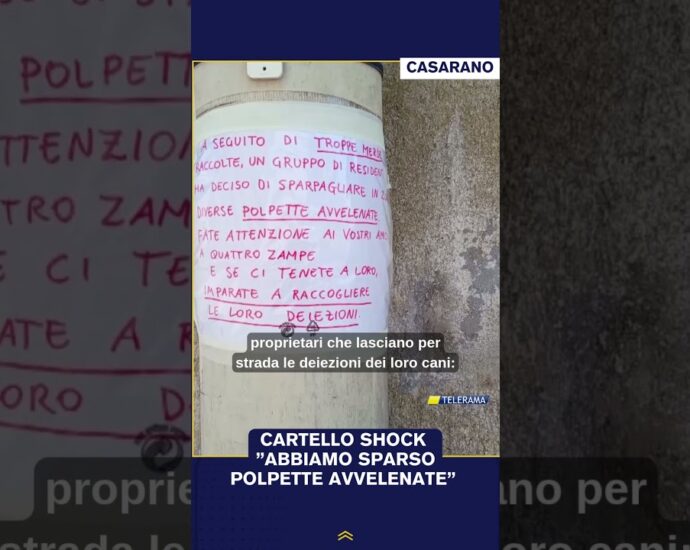 CASARANO
A SEGUITO DI TROPPE MERDE
RACCOLTE, UN GRUPPO DI RESIDENTI
HA DECISO DI SPARPAGLIARE IN
DIVERSE POLPETTE AVVELENATE
FATE ATTENZIONE AI VOSTRI AMICI
A QUATTRO ZAMPE
E SE CI TENETE A LORO,
IMPARATE A RACCOGLIERE
LE LORO DEIEZIONI.
proprietari che lasciano per
strada le deiezioni dei loro cani:
TELERAMA
CARTELLO SHOCK
”ABBIAMO SPARSO
POLPETTE AVVELENATE”